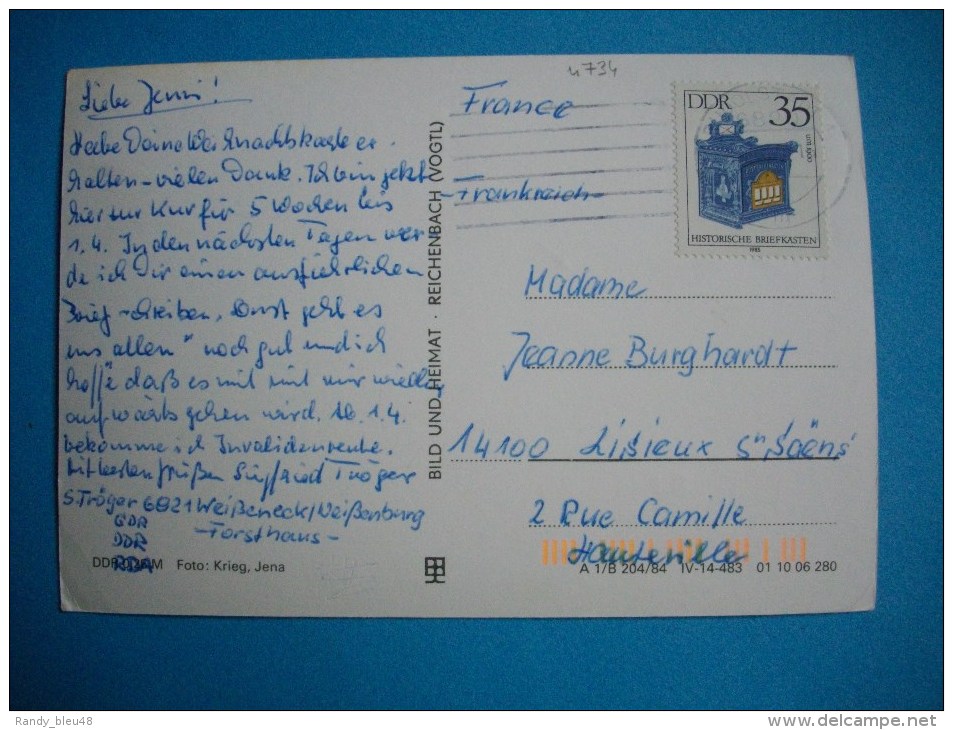 Liebe Jenni!
Habe Deine Weihnachtskarte er-
halten - vielen Dank. Ich bin jetzt
hier zur Kur für 5 Wochen bis
1.4. In den nächsten Tagen wer-
de ich Dir einen ausführlichen
Brief schreiben. Sonst geht es
uns allen noch gut und ich
hoffe daß es mit mir
aufwärts gehen wird. Ab 1.4.
bekomme ich Invalidenrente.
Mit besten Grüßen Siegfried Tröger
S. Tröger 6821 Weißeneck/Weißenburg
- Forsthaus -
GDR
DDR
RDA
DDR M Foto: Krieg, Jena
BILD UND HEIMAT · REICHENBACH (VOGTL)
4734
France
Frankreich
DDR 35
um 1900
HISTORISCHE BRIEFKASTEN
1985
Madame
Jeanne Burghardt
14100 Lisieux
2 Rue Camille
A 1/B 204/84 IV-14-483 01 10 06 280
Randy_bleu48
www.delcampe.net